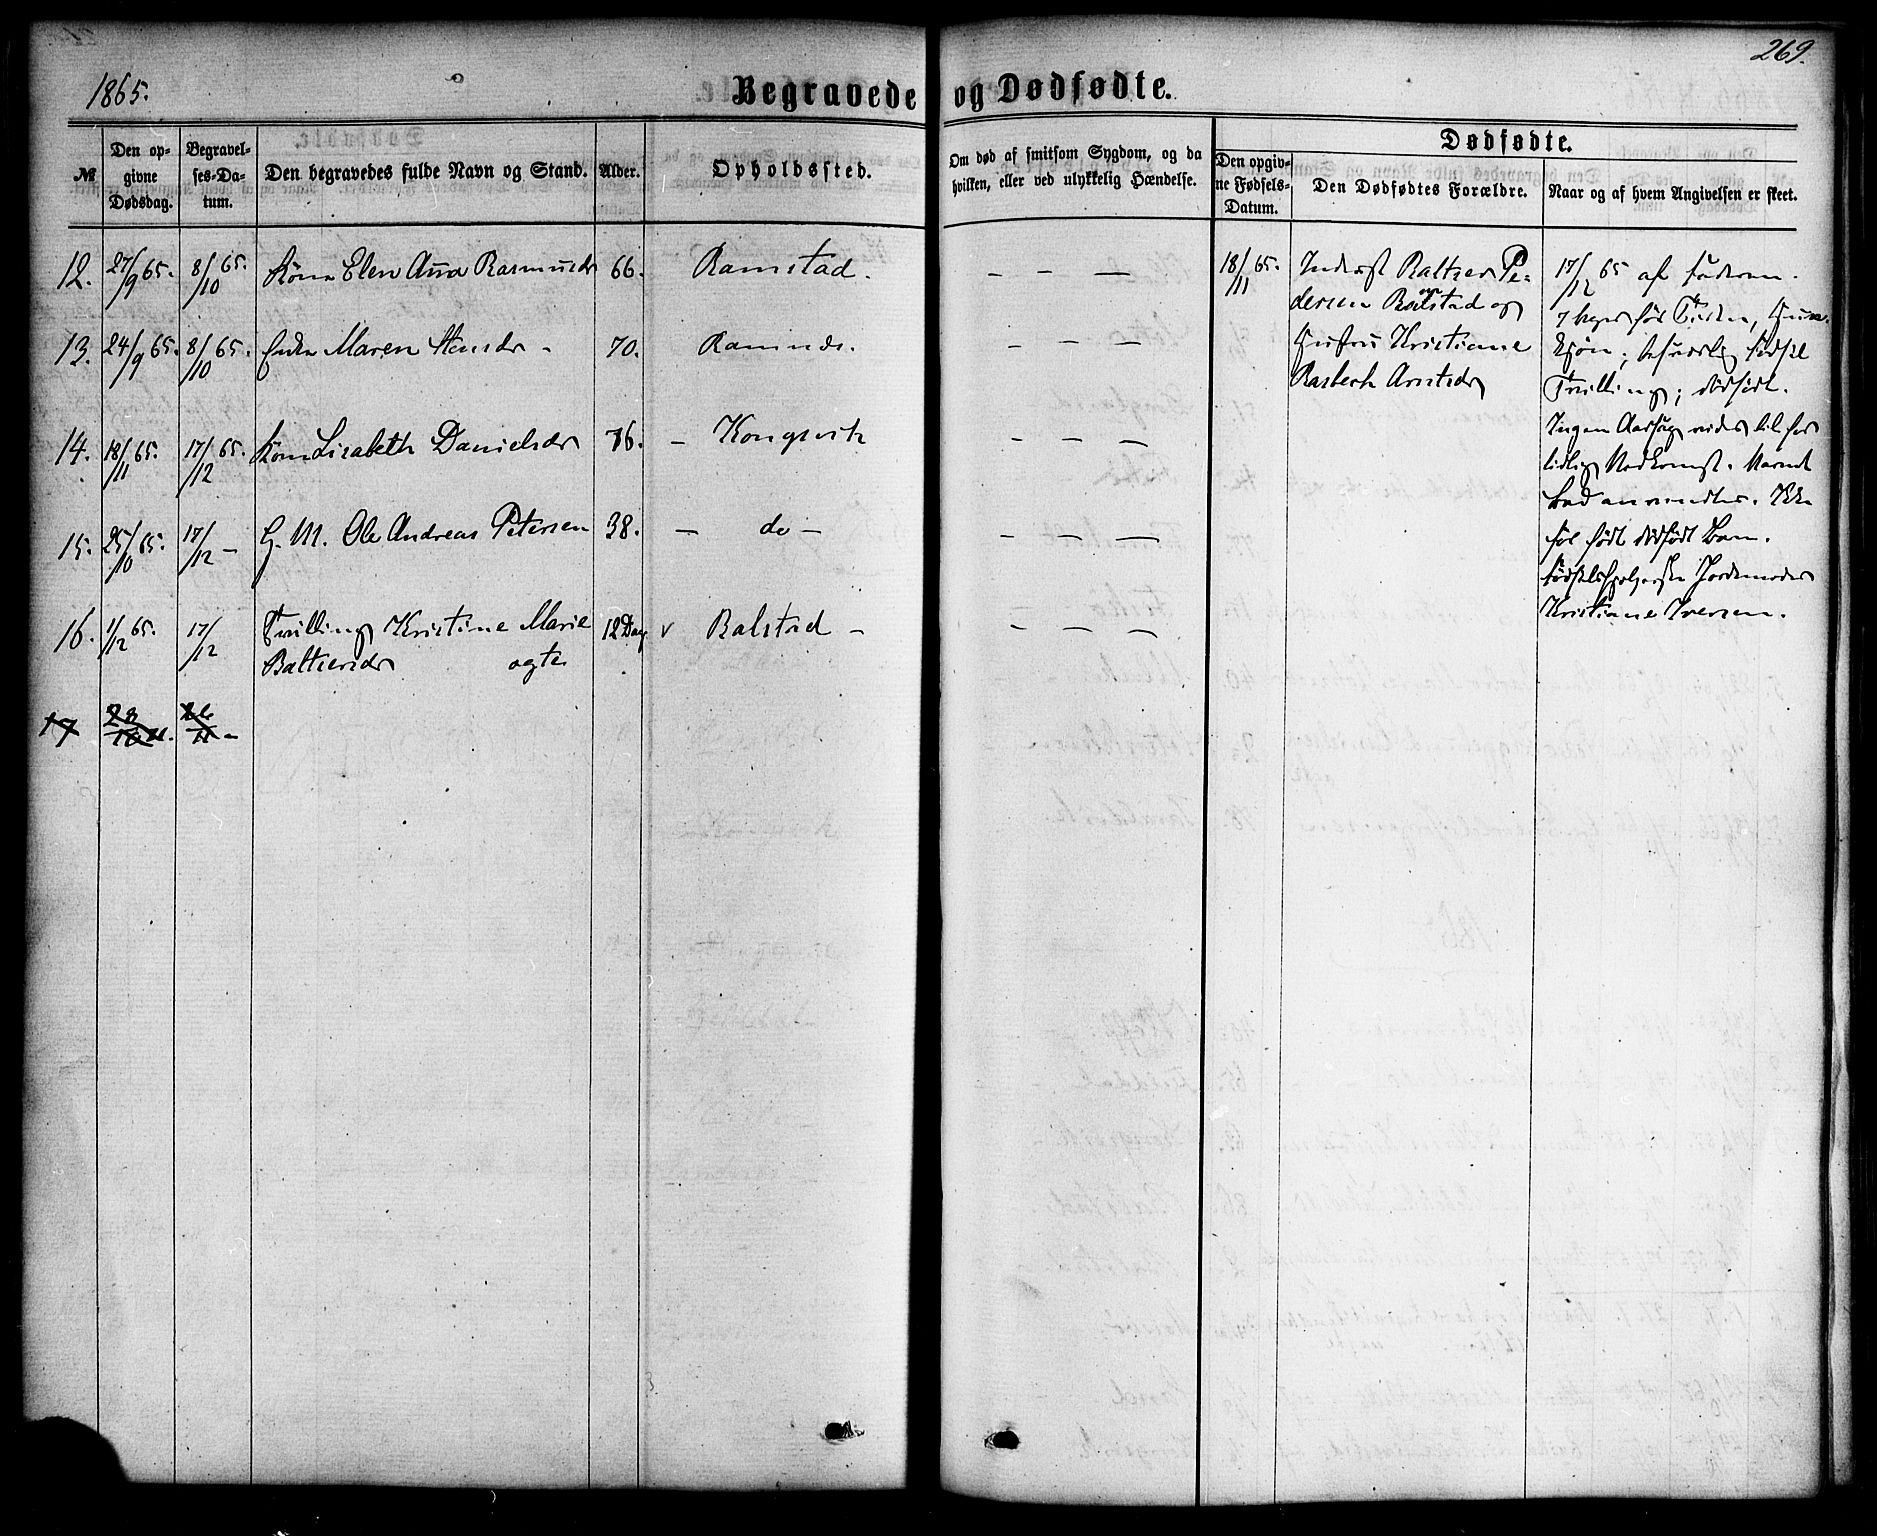 269.
1865.
Begravede og Dødfødte.
№
Den opgivne Dødsdag.
Begravelses-Datum.
Den begravedes fulde Navn og Stand.
Alder.
Opholdssted.
Om død af smitsom Sygdom, og da hvilken, eller ved ulykkelig Hændelse.
Dødfødte.
Den opgivne Fødsels-Datum.
Den Dødfødtes Forældre.
Naar og af hvem Angivelsen er skeet.
12. 27/9 65. 8/10 65. Elen Ana Rasmusdr 66. Ramstad. — — —
13. 24/9 65. 8/10 65. Enke Maren Hansdr - 70. — — —
14. 18/11 65. 17/12 65. Lisabeth Danielsdr 76. — Kongsvik — — —
15. 25/10 65. 17/12 — G. M. Ole Andreas Petersen 38. — do — — — —
16. 1/12 65. 17/12 Tvilling Kristine Marie 12 Dag v Balstad — — — —
Baltzersdr ægte
17 28/10 26/11 -
18/11 65.
Inderst Baltzer Pe-
dersen Balstad og
Hustru Kristiane
Arntsdr
17/12 65 af Faderen.
7 Uger før Tiden,
kjøn; besværlig Fødsel
Tvilling; dødfødt.
Ingen Aarsag vides til for
tidlig Nedkomst. Varmt
Bad anvendtes. Ikke
før født dødfødt Barn.
Fødselshjelperske Jordemoder
Kristiane Iversen.